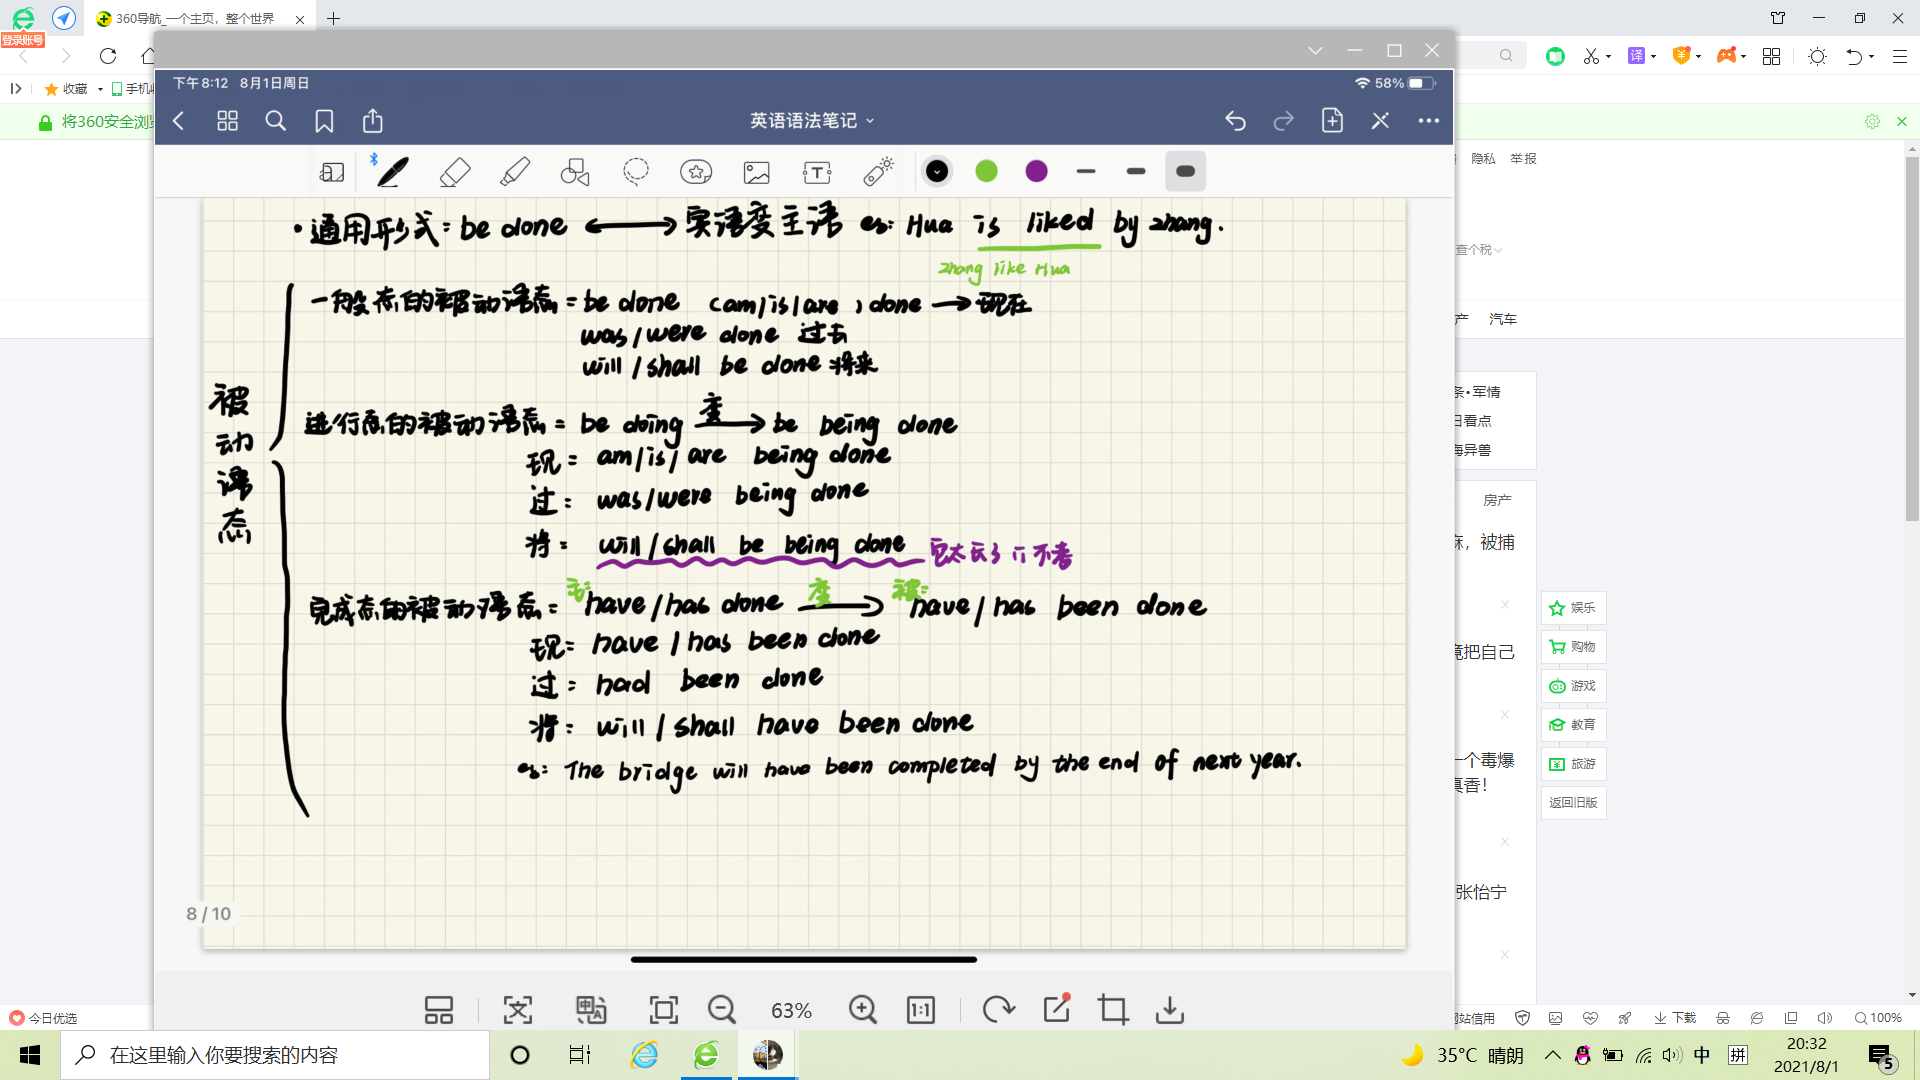 360导航_一个主页，整个世界
登录账号
收藏
手机收
将360安全浏览
隐私 举报
查个税
产 汽车
条•军情
日看点
海异兽
房产
麻，被捕
竟把自己
一个毒爆
真香！
张怡宁
娱乐
购物
游戏
教育
旅游
返回旧版
下午8:12 8月1日周日
58%
英语语法笔记
•通用形式：be done ⟷ 宾语变主语 eg: Hua is liked by zhang.
zhang like Hua
被动语态
一般态的被动语态 = be done (am/is/are) done → 现在
was/were done 过去
will/shall be done 将来
进行态的被动语态 = be doing 变→ be being done
现 = am/is/are being done
过: was/were being done
将: will/shall be being done 它太长了 不考
完成态的被动语态 = 主: have/has done 变→ 被: have/has been done
现: have/has been done
过: had been done
将: will/shall have been done
eg: The bridge will have been completed by the end of next year.
8/10
63%
1:1
今日优选
网站信用
下载
100%
在这里输入你要搜索的内容
35°C 晴朗
中
拼
20:32
2021/8/1
5